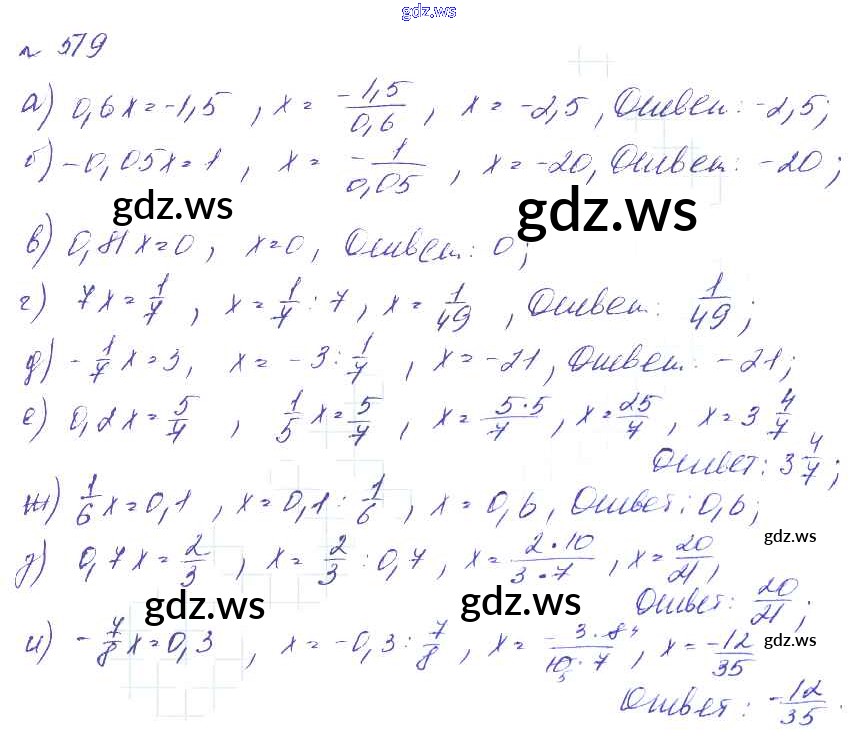 gdz.ws
№ 579
а) 0,6x=-1,5 , x = -1,5/0,6 , x = -2,5, Ответ: -2,5;
б) -0,05x=1 , x = -1/0,05 , x=-20, Ответ: -20;
gdz.ws gdz.ws
в) 0,81x=0, x=0, Ответ: 0;
г) 7x=1/7 , x=1/7:7, x=1/49 , Ответ: 1/49;
д) -1/7x=3, x=-3:1/7 , x=-21, Ответ: -21;
е) 0,2x=5/7 , 1/5x=5/7 , x=5·5/7 , x=25/7 , x=3 4/7
Ответ: 3 4/7;
ж) 1/6x=0,1 , x=0,1:1/6 , x=0,6, Ответ: 0,6;
gdz.ws
з) 0,7x=2/3 , x=2/3:0,7, x=2·10/3·7 , x=20/21,
Ответ: 20/21;
gdz.ws gdz.ws
и) -7/8x=0,3 , x=-0,3:7/8 , x=-3·8⁴/10₅·7 , x=-12/35
gdz.ws
Ответ: -12/35.